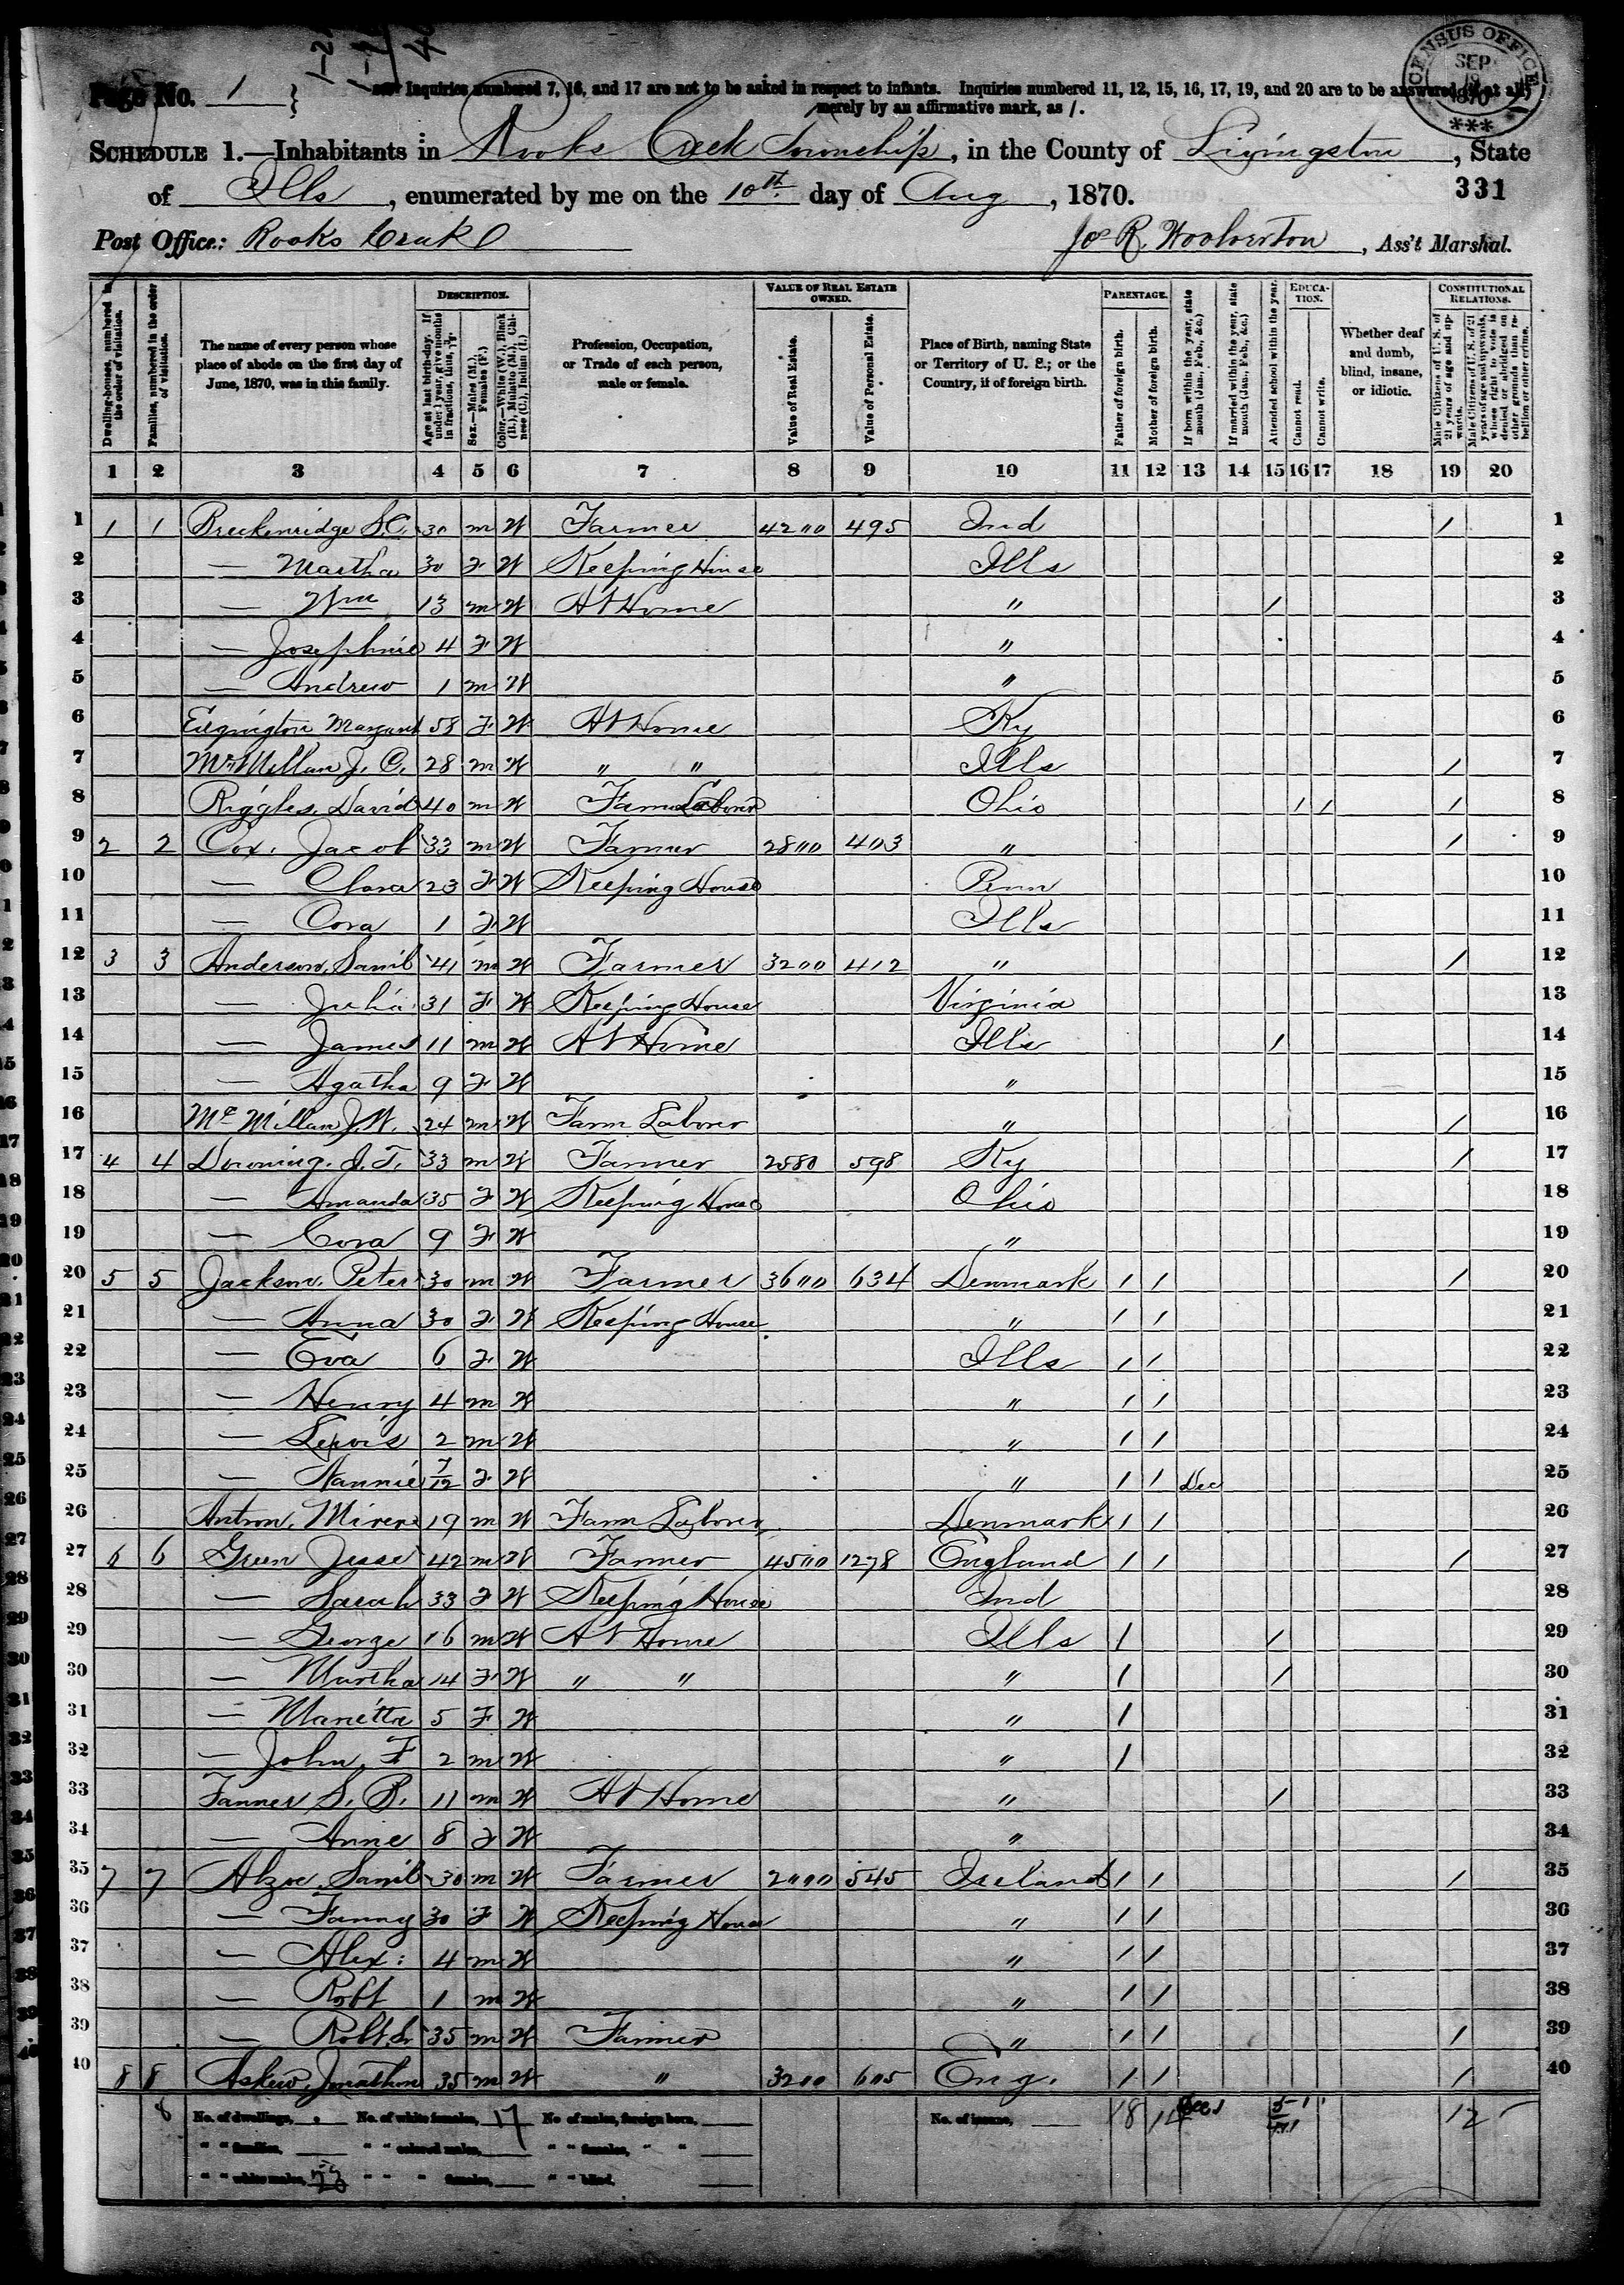 Page No. 1
Inquiries numbered 7, 16, and 17 are not to be asked in respect to infants. Inquiries numbered 11, 12, 15, 16, 17, 19, and 20 are to be answered (if at all)
merely by an affirmative mark, as /.
CENSUS OFFICE SEP 1870 ***
SCHEDULE 1.—Inhabitants in Rooks Creek Township, in the County of Livingston, State
of Ills, enumerated by me on the 10th day of Aug, 1870. 331
Post Office: Rooks Creek Jos R. Woolverton, Ass't Marshal.
Dwelling-houses, numbered in the order of visitation.
Families, numbered in the order of visitation.
The name of every person whose place of abode on the first day of June, 1870, was in this family.
DESCRIPTION.
Age at last birth-day. If under 1 year, give months in fractions, thus, 3/12.
Sex.—Males (M.), Females (F.)
Color.—White (W.), Black (B.), Mulatto (M.), Chinese (C.), Indian (I.)
Profession, Occupation, or Trade of each person, male or female.
VALUE OF REAL ESTATE OWNED.
Value of Real Estate.
Value of Personal Estate.
Place of Birth, naming State or Territory of U. S.; or the Country, if of foreign birth.
PARENTAGE.
Father of foreign birth.
Mother of foreign birth.
If born within the year, state month (Jan., Feb., &c.)
If married within the year, state month (Jan., Feb., &c.)
Attended school within the year.
EDUCATION.
Cannot read.
Cannot write.
Whether deaf and dumb, blind, insane, or idiotic.
CONSTITUTIONAL RELATIONS.
Male Citizens of U. S. of 21 years of age and upwards.
Male Citizens of U. S. of 21 years of age and upwards, whose right to vote is denied or abridged on other grounds than rebellion or other crime.
1 2 3 4 5 6 7 8 9 10 11 12 13 14 15 16 17 18 19 20
1 1 1 Breckenridge S.C. 30 m W Farmer 4200 495 Ind / 1
2 — Martha 30 F W Keeping House Ills 2
3 — Wm 13 m W At Home " / 3
4 — Josephine 4 F W " 4
5 — Andrew 1 m W " 5
6 Margaret 58 F W At Home Ky 6
7 McMillan J. C. 28 m W " " Ills / 7
8 Riggles, David 40 m W Farm Laborer Ohio / / / 8
9 2 2 Cox, Jacob 33 m W Farmer 2800 403 " / 9
10 — Clara 23 F W Keeping House Penn 10
11 — Cora 1 F W Ills 11
12 3 3 Anderson, Saml 41 m W Farmer 3200 412 " / 12
13 — Julia 31 F W Keeping House Virginia 13
14 — James 11 m W At Home Ills / 14
15 — Agatha 9 F W " 15
16 McMillan J. W. 24 m W Farm Laborer " / 16
17 4 4 Downing, J. T. 33 m W Farmer 2580 598 Ky / 17
18 — Amanda 35 F W Keeping House Ohio 18
19 — Cora 9 F W " 19
20 5 5 Jackson, Peter 30 m W Farmer 3600 634 Denmark / / / 20
21 — Anna 30 F W Keeping House " / / 21
22 — Eva 6 F W Ills / / 22
23 — Henry 4 m W " / / 23
24 — Lewis 2 m W " / / 24
25 — Nannie 7/12 F W " / / Dec 25
26 19 m W Farm Laborer Denmark / / 26
27 6 6 Green Jesse 42 m W Farmer 4500 1278 England / / / 27
28 — Sarah 33 F W Keeping House Ind 28
29 — George 16 m W At Home Ills / / 29
30 — Martha 14 F W " " " / / 30
31 — Marietta 5 F W " / 31
32 — John F 2 m W " / 32
33 Fanner S. B. 11 m W At Home " / 33
34 — Annie 8 F W " 34
35 7 7 Alzoe, Saml 30 m W Farmer 2000 545 Ireland / / / 35
36 — Fanny 30 F W Keeping House " / / 36
37 — Alex: 4 m W " / / 37
38 — Robt 1 m W " / / 38
39 — Robt. Sr 35 m W Farmer " / / / 39
40 8 8 Askew, Jonathan 35 m W " 3200 605 Eng. / / / 40
8 No. of dwellings, No. of white females, 17 No. of males, foreign born, No. of insane, 18 12
" " families, " " colored males, " " females, " "
" " white males, 23 " " " females, " " blind,